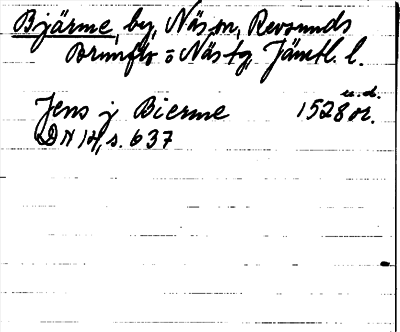 Bjärme, by, Näs sn, Revsunds
Brunflo o Näs tg, Jämtl. l.
u.d.
Jens j Bierme 1528 or.
DN 14, s. 637